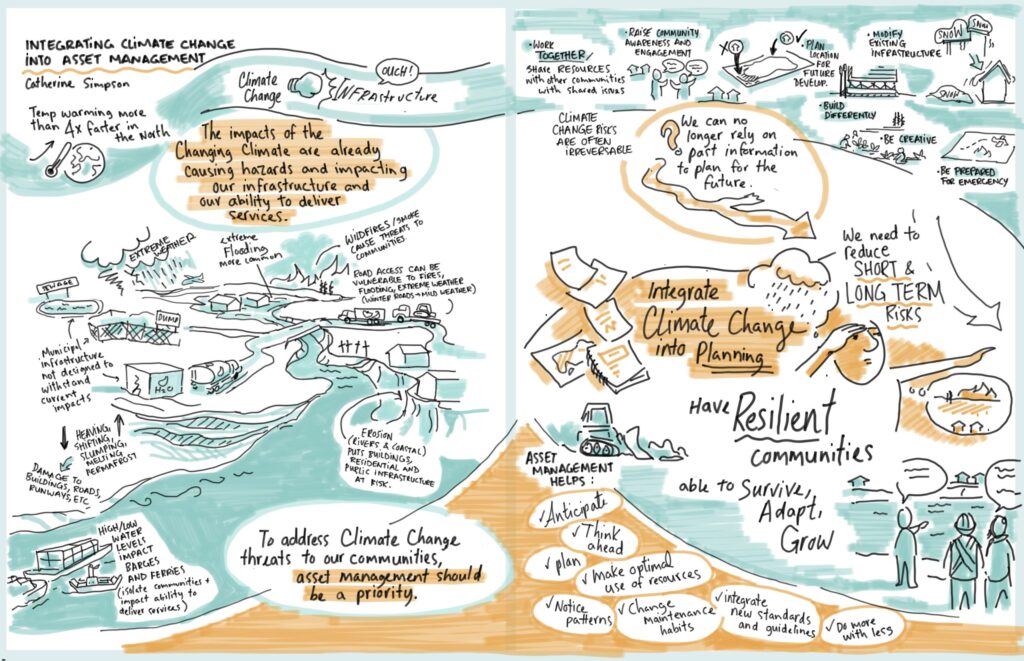 INTEGRATING CLIMATE CHANGE
INTO ASSET MANAGEMENT
Catherine Simpson
Temp warming more
than 4x faster in
the North
Climate
Change
OUCH!
INFRAstructure
The impacts of the
Changing Climate are already
causing hazards and impacting
our infrastructure and
our ability to deliver
services.
EXTREME
WEATHER
extreme
Flooding
more common
WILDFIRES/SMOKE
CAUSE THREATS TO
COMMUNITIES
ROAD ACCESS CAN BE
VULNERABLE TO FIRES,
FLOODING, EXTREME WEATHER
(WINTER ROADS → MILD WEATHER)
SEWAGE
DUMP
Municipal
infrastructure
not designed to
withstand
current
impacts
H2O
HEAVING,
SHIFTING,
SLUMPING,
MELTING
PERMAFROST
DAMAGE TO
BUILDINGS, ROADS,
RUNWAYS, ETC
EROSION
(RIVERS & COASTAL)
PUTS BUILDINGS,
RESIDENTIAL AND
PUBLIC INFRASTRUCTURE
AT RISK.
HIGH/LOW
WATER
LEVELS
IMPACT
BARGES
AND FERRIES
(isolate communities +
impact ability to
deliver services)
To address Climate Change
threats to our communities,
asset management should
be a priority.
• WORK
TOGETHER/
SHARE RESOURCES
with other communities
with shared issues
• RAISE COMMUNITY
AWARENESS AND
ENGAGEMENT
• PLAN
LOCATION
FOR
FUTURE
DEVELOP.
• MODIFY
EXISTING
INFRASTRUCTURE
SNOW
SNOW
SNOW
• BUILD
DIFFERENTLY
• BE CREATIVE
• BE PREPARED
FOR EMERGENCY
CLIMATE
CHANGE RISKS
ARE OFTEN
IRREVERSABLE
We can no
longer rely on
past information
to plan for the
future.
We need to
reduce
SHORT &
LONG TERM
RISKS
Integrate
Climate Change
into Planning
Have Resilient
Communities
able to Survive,
Adapt,
Grow
ASSET
MANAGEMENT
HELPS:
✓Anticipate
✓Think
ahead
✓plan
✓Make optimal
use of resources
✓Notice
patterns
✓Change
maintenance
habits
✓integrate
new standards
and guidelines
✓Do more
with less